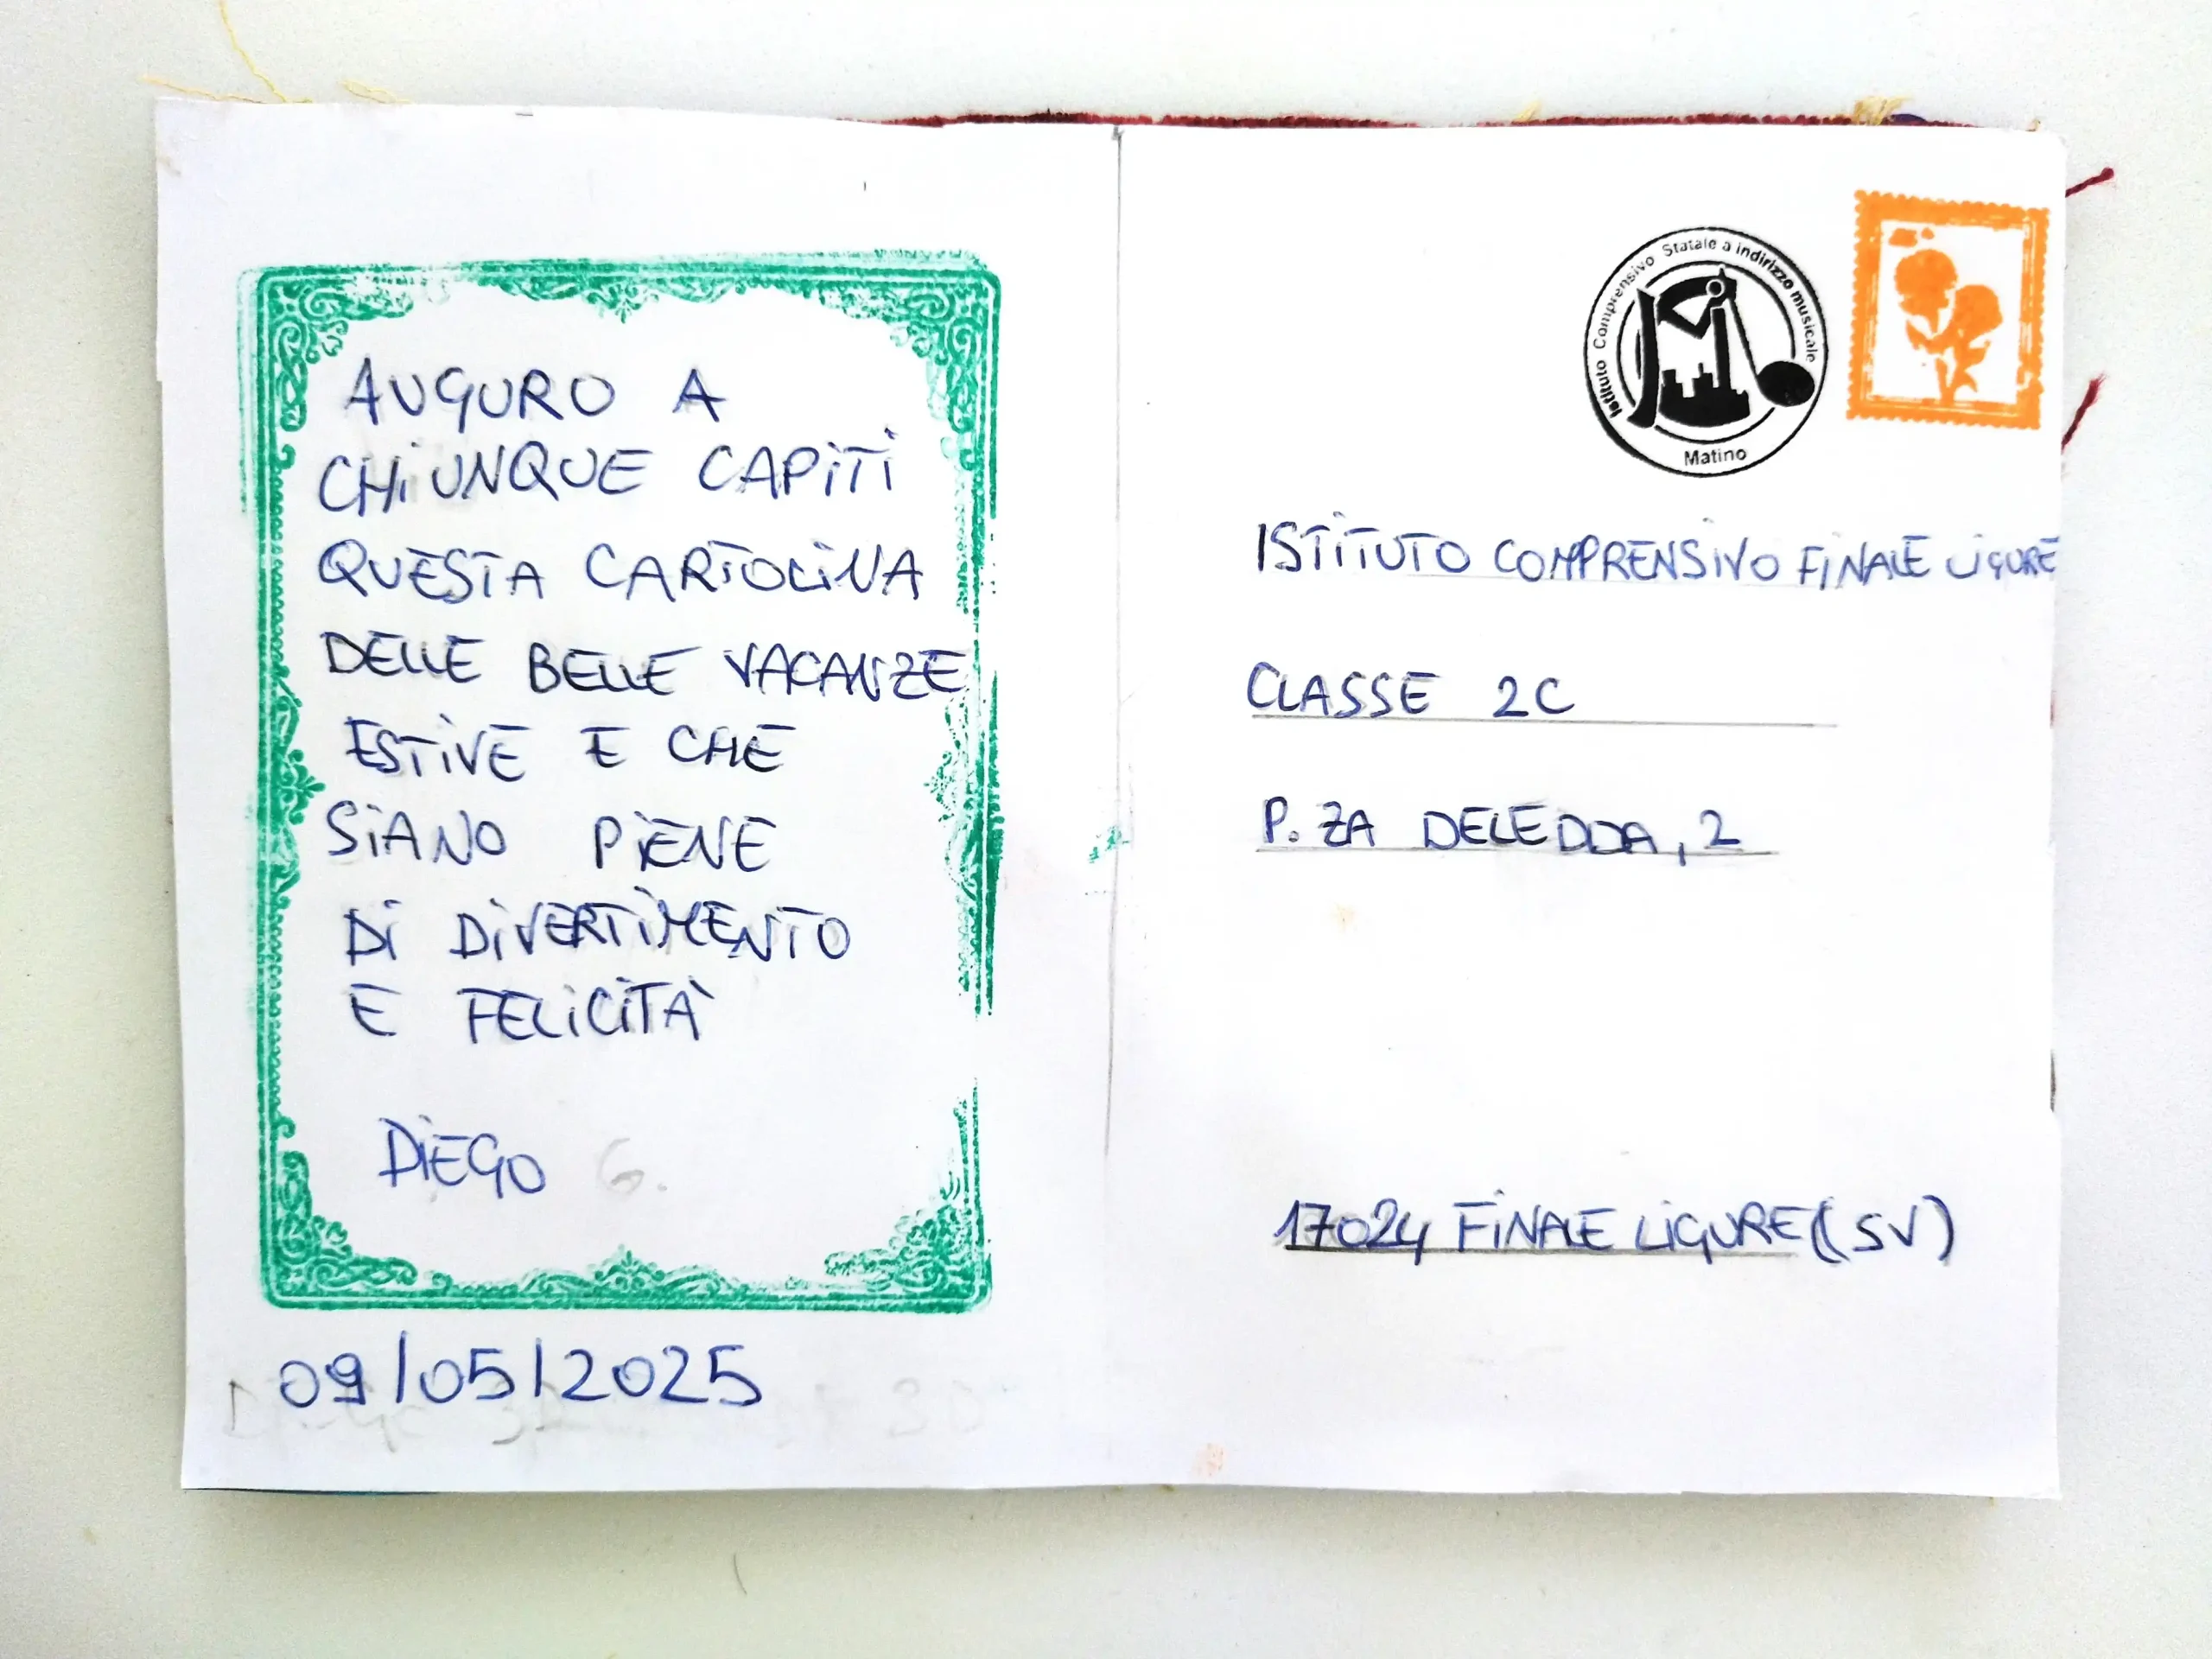 AUGURO A
CHiUNQUE CAPiTi
QUESTA CARTOLiNA
DELLE BELLE VACANZE
ESTiVE E CHE
SiANO PiENE
Di DiVERTiMENTO
E FELiCiTÀ
DiEGO G.
09/05/2025
Istituto Comprensivo Statale a indirizzo musicale
Matino
ISTiTUTO COMPRENSiVO FiNALE LiGURE
CLASSE 2C
P.ZA DELEDDA, 2
17024 FiNALE LiGURE (SV)